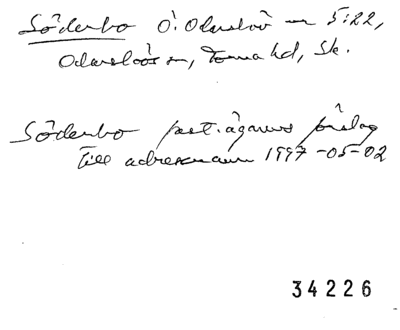 Söderbo Ö. Odarslöv 5:22,
Odarslövs sn, Torna hd, Sk.
Söderbo fast. ägarens förslag
till adressnamn 1997-05-02
34226